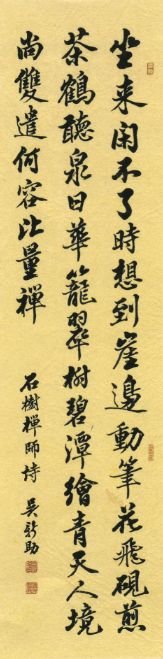 坐来闲不了時想到崖邊動筆花飛硯煎
茶鶴聽泉日華籠翠樹碧潭繪青天人境
尚雙遣何容比量禪
石樹禅師詩 吴新助